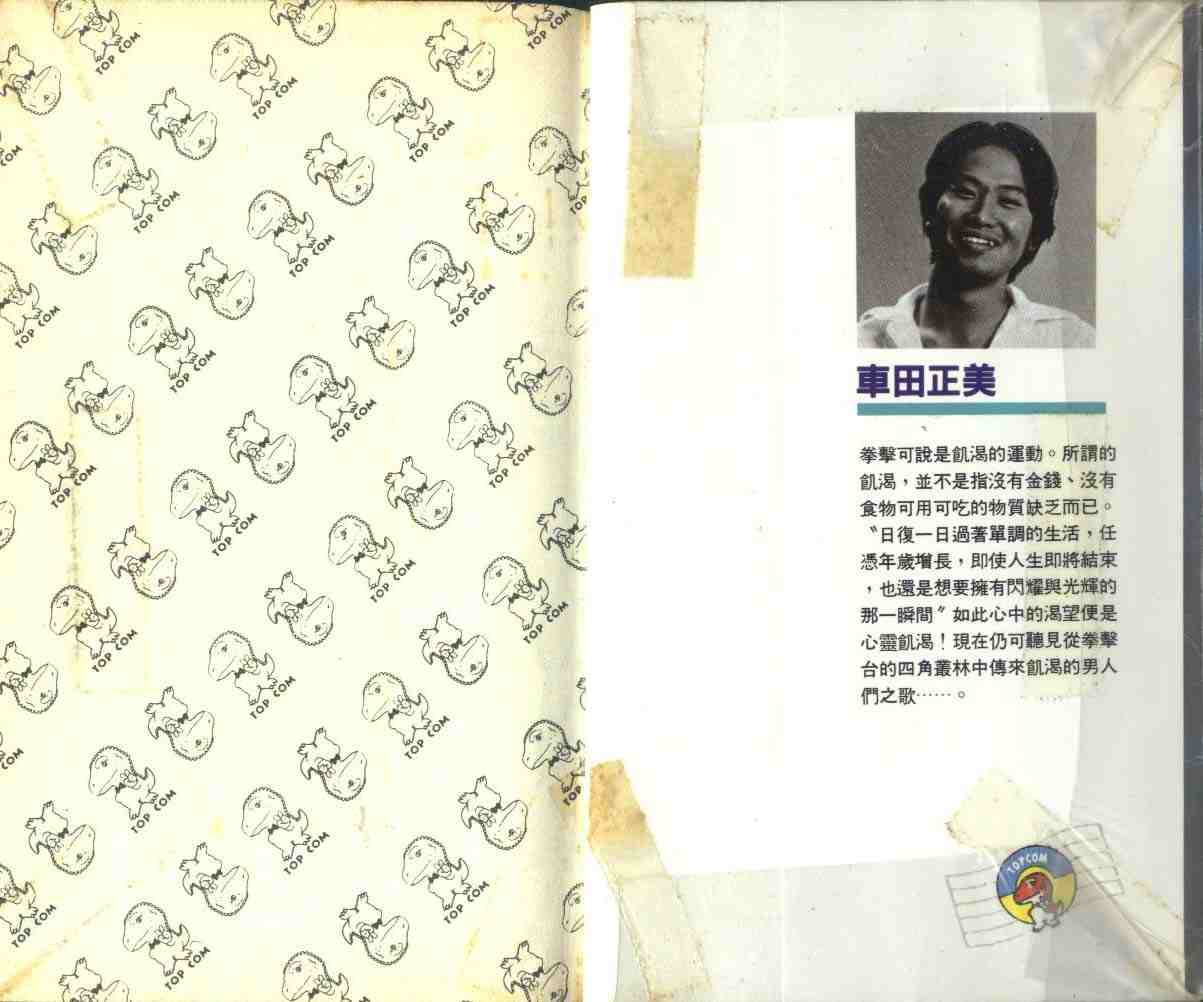 TOP COM
車田正美
拳擊可說是飢渴的運動。所謂的
飢渴，並不是指沒有金錢、沒有
食物可用可吃的物質缺乏而已。
〝日復一日過著單調的生活，任
憑年歲增長，即使人生即將結束
，也還是想要擁有閃耀與光輝的
那一瞬間〞如此心中的渴望便是
心靈飢渴！現在仍可聽見從拳擊
台的四角叢林中傳來飢渴的男人
們之歌……。
TOPCOM